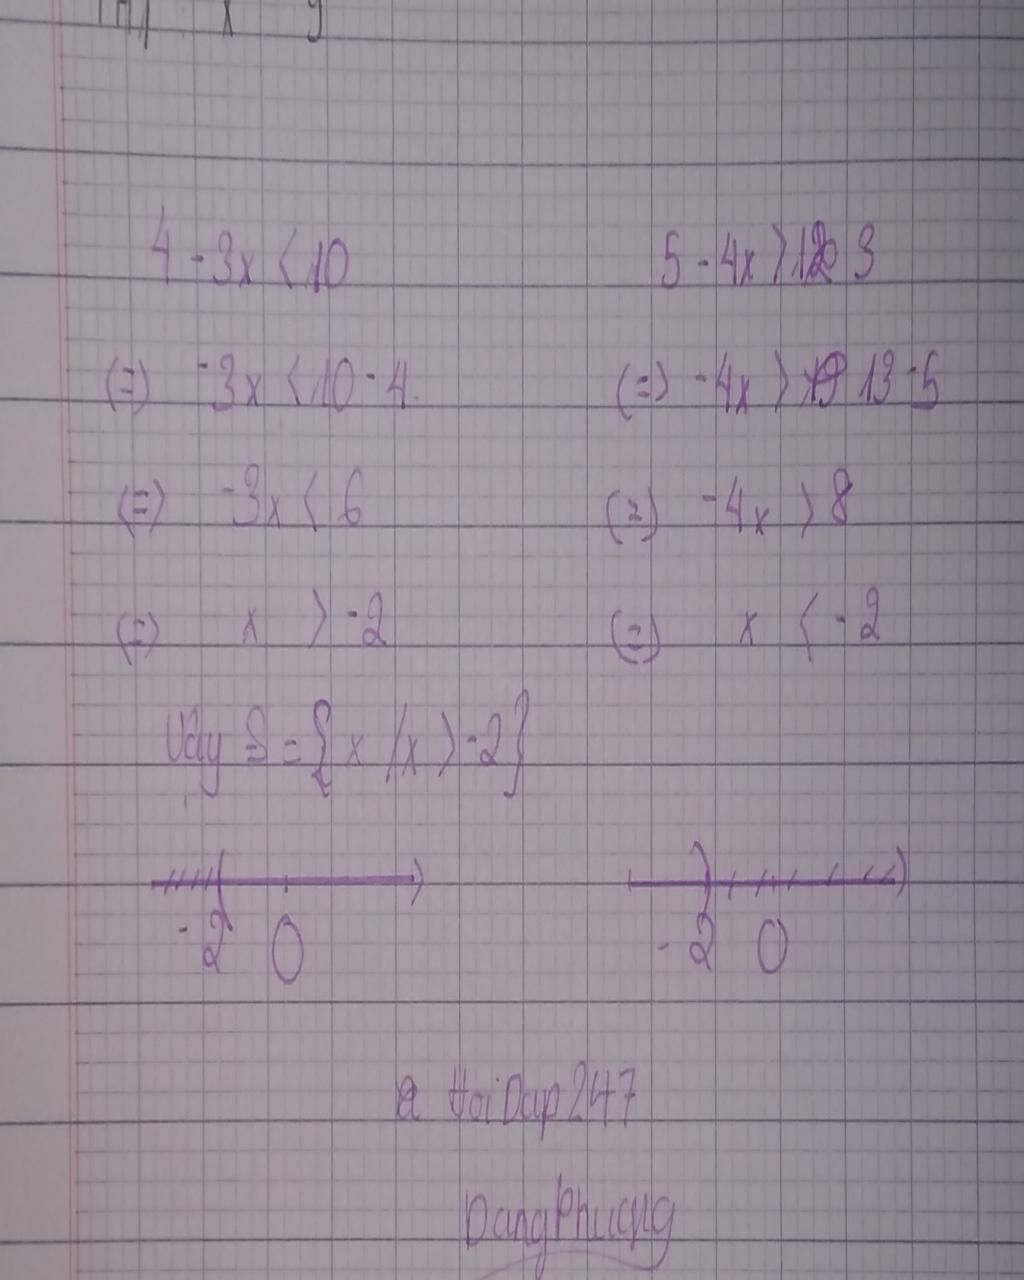 4 - 3x < 10
(=) -3x < 10 - 4
(=) -3x < 6
(=) x > -2
Vậy S = {x / x > -2}
-2 0
5 - 4x > 13
(=) -4x > 13 - 5
(=) -4x > 8
(=) x < -2
-2 0
HoiDap247
DangPhuong